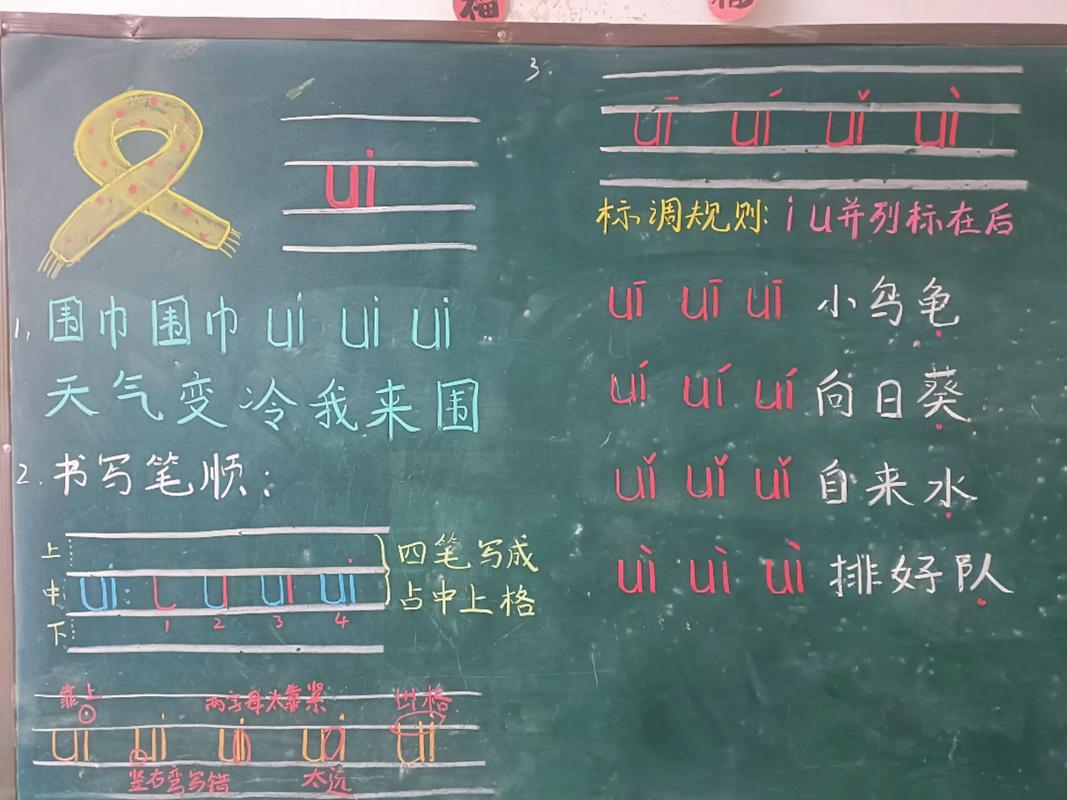 福
ui
1, 围巾围巾 ui ui ui
天气变冷我来围
2. 书写笔顺：
上
中
下
ui
1 2 3 4
ui ui
四笔写成
占中上格
靠上
两字母太靠紧
出格
ui ui ui ui ui
竖右弯写错
太远
3.
uī uí uǐ uì
标调规则: i u并列标在后
uī uī uī 小乌龟
uí uí uí 向日葵
uǐ uǐ uǐ 自来水
uì uì uì 排好队